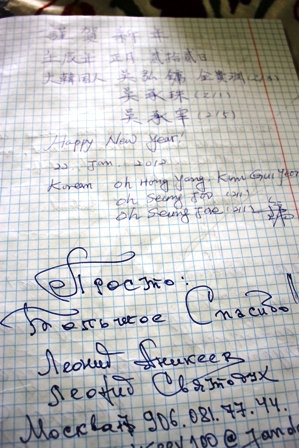 謹賀新年
壬辰年 正月 貳拾貳日
大韓国人 吳弘鏞
吳承珠 (21)
吳承宰 (215)
Happy New Year!
22 Jan. 2012
Korean oh Hong Yong. Kim
oh Seung Joo (21)
oh Seung Jae
Просто:
Большое Спасибо!
Леонид Аникеев
Леонид Святодух
Москва 906. 081. 77. 44.
100@Yand